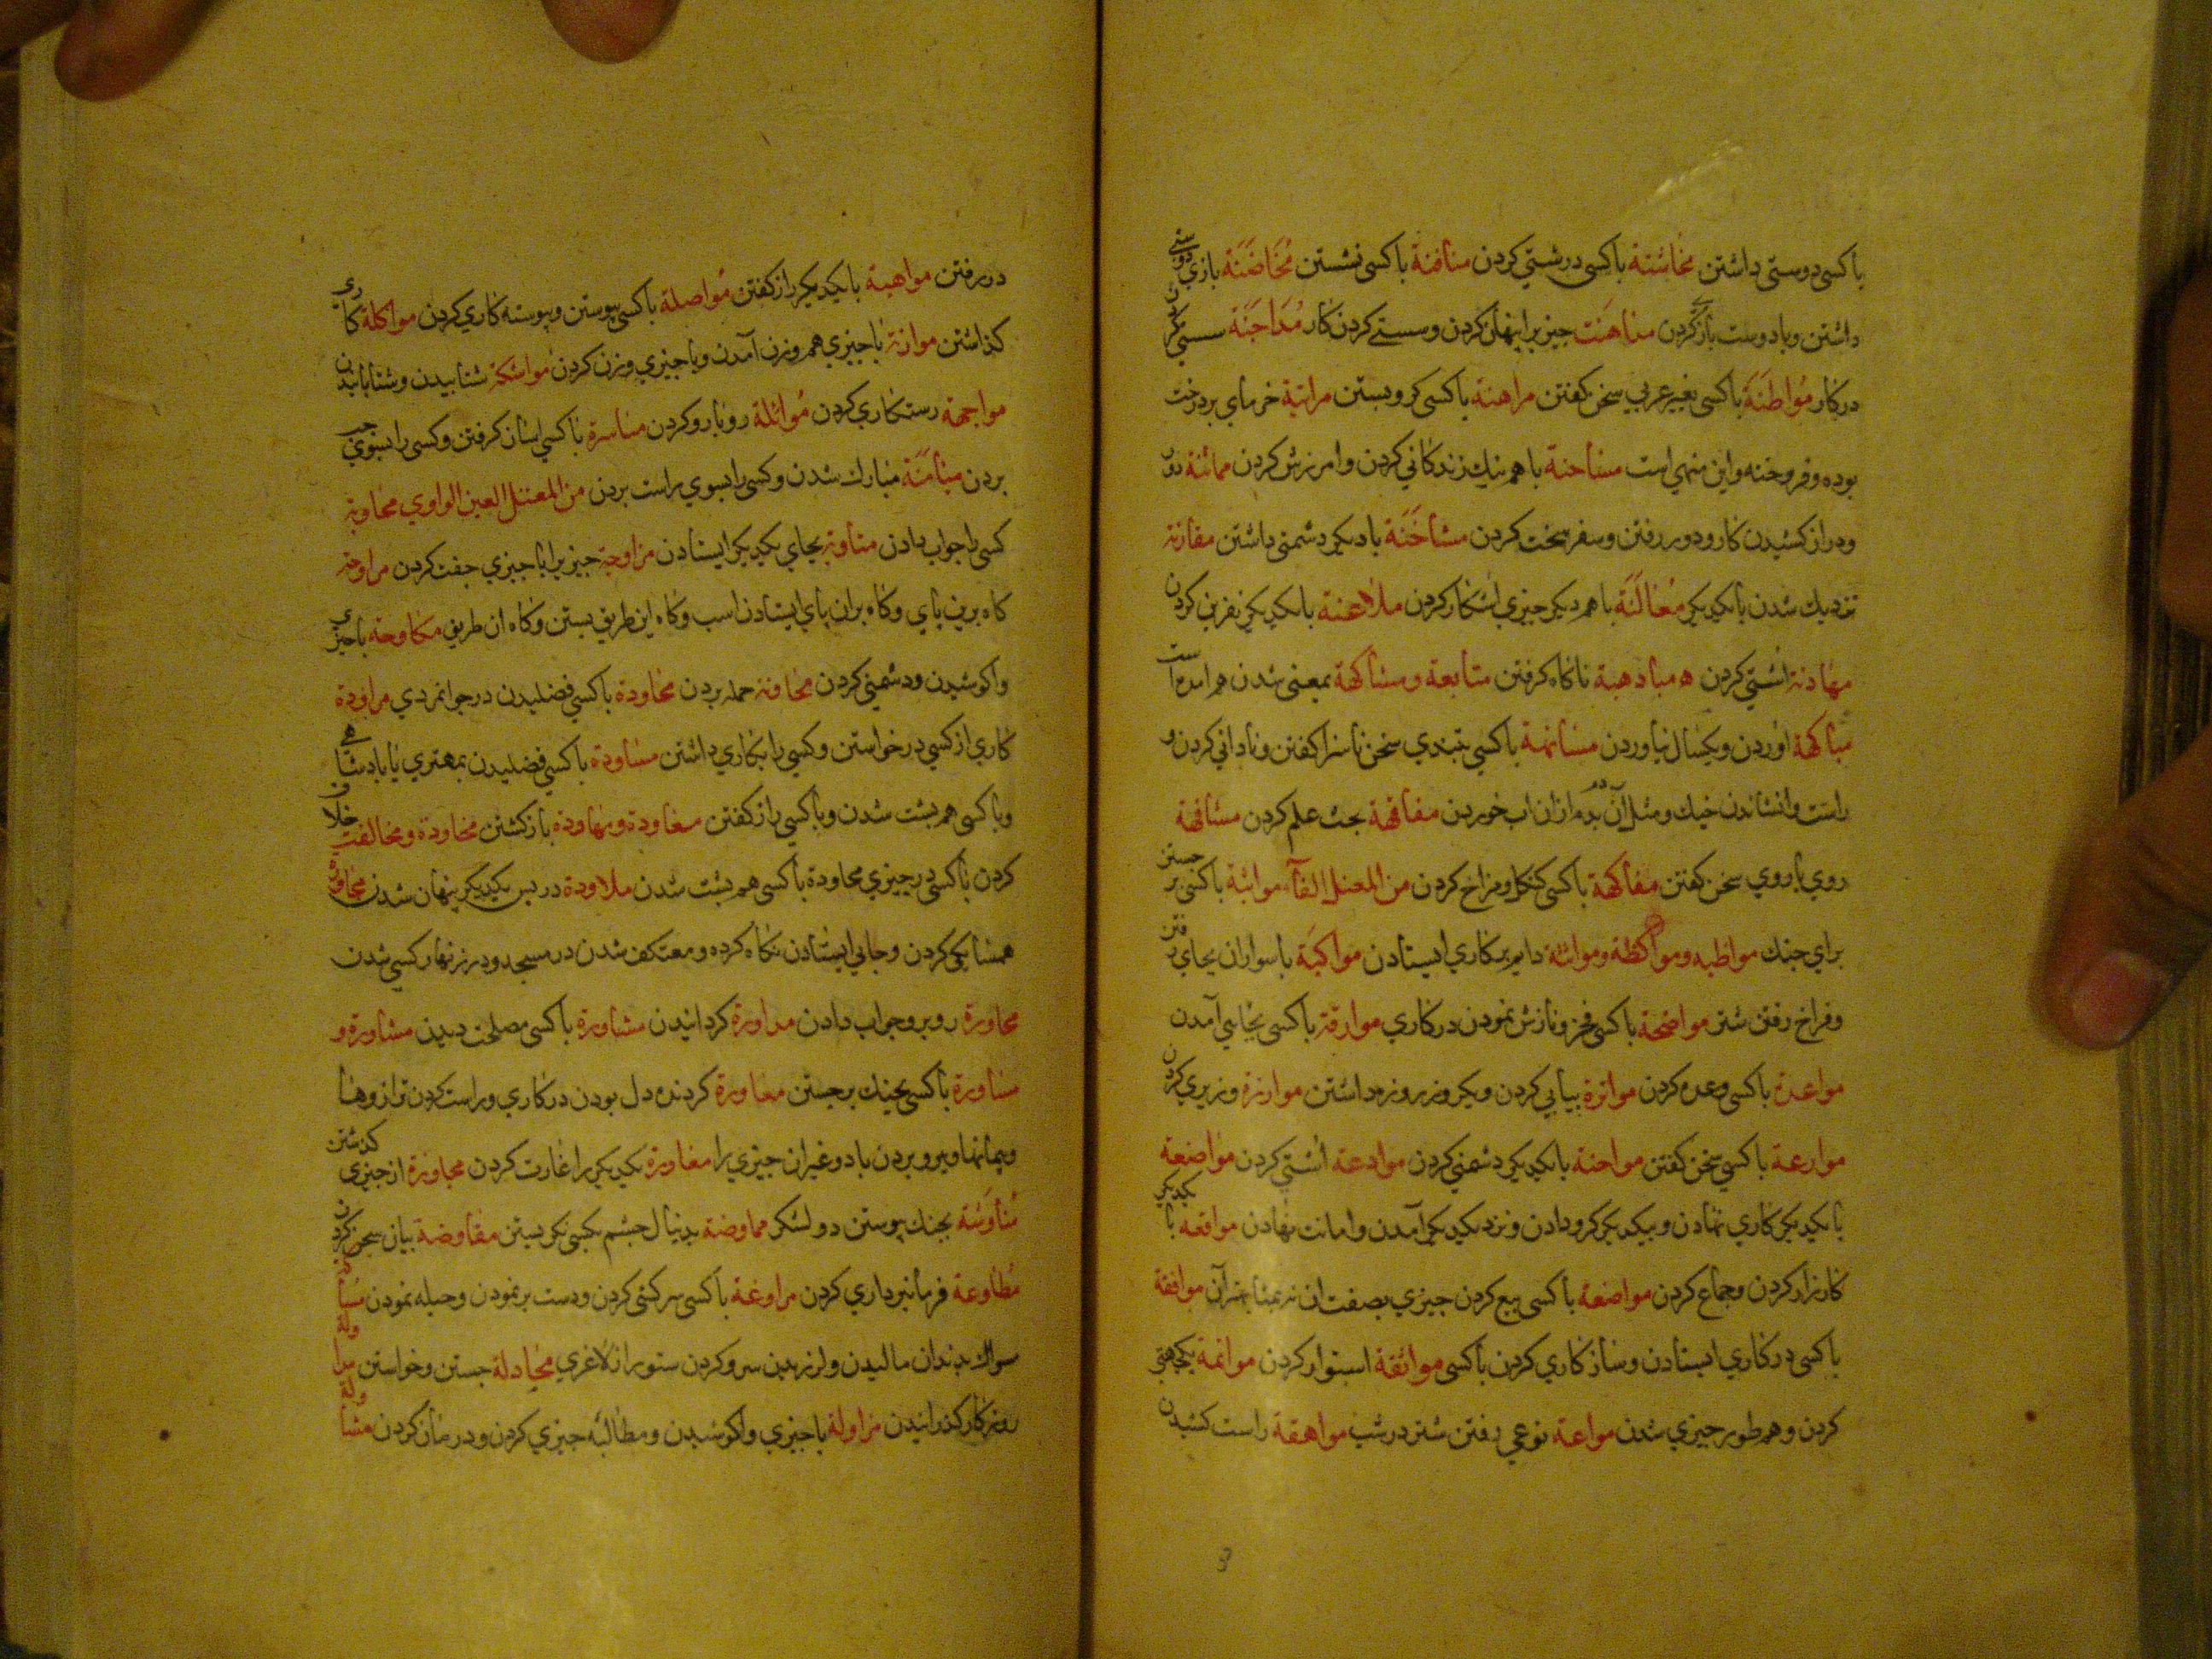 باکسی دوستی داشتن مخاشنة باکسی درشتی کردن منافنة باکسی نشستن مخاضنة بازی دوستی
داشتن وبا دوست بازی کردن مداهنت چیزیرا پنهان کردن وسستی کردن کار مداجنة سستی کردن
درکار مواطنة باکسی بغیر عربی سخن کفتن مراهنة باکسی کرو بستن مزابنة خرمای بردرخت
بوده وفروخته واین منهی است مساحنة باهم نیك زندکانی کردن وامرزش کردن مماتنة دور
ودراز کشیدن کار ودور رفتن وسفر سخت کردن مشاحنة بادیکری دشمنی داشتن مقارنة
نزدیك شدن بایکدیکر معالنة باهم دیکر چیزی اشکار کردن ملاعنة بایکدیکر نفرین کردن
مهادنة اشتی کردن ه مبادهة ناکاه کرفتن متابعة ومشاکهة بمعنی شدن هم امده است
اوردن ویکسال نیاوردن مسانهة باکسی بتندی سخن ناسزا کفتن ونادانی کردن و
راست وانشاندن خیك ومثل آن بدم ازان اب خوردن مفاقهة بحث علم کردن مشافهة
روی باروی سخن کفتن مفاکهة باکسی کنکل ومزاح کردن من المعتل الفآء مواثبة باکسی برجستن
برای جنك مواظبه ومواکظة دایم برکاری ایستادن مواکبة باسواران بجای رفتن
وفراخ رفتن شتر مواضخة باکسی فخر ونازش نمودن درکاری مواردة باکسی بجایی آمدن
مواعدة باکسی وعده کردن مواترة پیاپی کردن ویکروز روزه داشتن موازرة وزیری کردن
موارعة باکسی سخن کفتن مواحنة بایکدیکر دشمنی کردن موادعة اشتی کردن مواضعة
بایکدیکر کاری نهادن وبیکدیکر کرو دادن ونزد یکدیکر آمدن وامانت نهادن مواقعه با یکدیکر
کارزار کردن وجماع کردن مواصفة باکسی بیع کردن چیزی بصفت ان موافقة
باکسی درکاری ایستادن وسازکاری کردن باکسی مواثقة استوار کردن موائمة یکجهتی
کردن وهم طور چیزی شدن مواعة نوعی رفتن شتر درشب مواهقة راست کشیدن
دررفتن مواهبة بایکدیکر راز کفتن مواصلة باکسی پیوستن وپیوسته کاری کردن مواکلة کاری
کذاشتن موازنة باچیزی هم وزن آمدن وباچیزی وزن کردن مواشکة شتابیدن وشتابانیدن
مواجهة رستکاری کردن موائلة رو بارو کردن میاسرة باکسی اسان کرفتن وکسی را بسوی چپ
بردن میامنة مبارك شدن وکسی را بسوی راست بردن من المعتل العین الواوی مجاوبة
کسی را جواب دادن مناوبة بجای یکدیکر ایستادن مزاوجة چیزیرا باچیزی جفت کردن مراوحة
کاه برین پای وکاه بران پای ایستادن اسب وکاه این طریق بستن وکاه ان طریق مکاوحة باچیزی
واکوشیدن ودشمنی کردن حمله بردن مجاودة باکسی فضلیدن درجوانمردی مراودة
کاری از کسی درخواستن وکسی را بکاری داشتن مساودة باکسی فضلیدن بمهتری یا پادشاهی
وباکسی هم پشت شدن وباکسی راز کفتن معاودة ومهاودة بازکشتن محاودة ومخالفت خلاف
کردن باکسی درچیزی محاودة باکسی هم پشت شدن ملاوذة درپس یکدیکر پنهان شدن مجاورة
همسایکی کردن وجایی ایستادن نکاه کرده ومعتکف شدن درمسجد ودر زنهار کسی شدن
محاورة روبرو جواب دادن مداورة کردانیدن مشاورة باکسی مصلحت دیدن مشاورة و
مساورة باکسی بجنك برجستن معاورة کردنده دل بودن درکاری وراست کردن ترازوها
وپیمانها وبرو بردن باد وغیران چیزی را مغاورة یکدیکر را غارت کردن مجاوزة ازچیزی کذشتن
مناوشة بجنك پیوستن دو لشکر مماوضة بدنبال چشم بکسی نکریستن مفاوضة بیان سخن کردن
مطاوعة فرمانبرداری کردن مراوغة باکسی سرکشی کردن ودست برنمودن وحیله نمودن مساوکة
سواك بدندان مالیدن ولرزیدن سرو کردن ستور از لاغری محاولة جستن وخواستن مداولة
روزکار کذرانیدن مزاولة باچیزی واکوشیدن ومطالبه چیزی کردن ودرمان کردن مشاولة